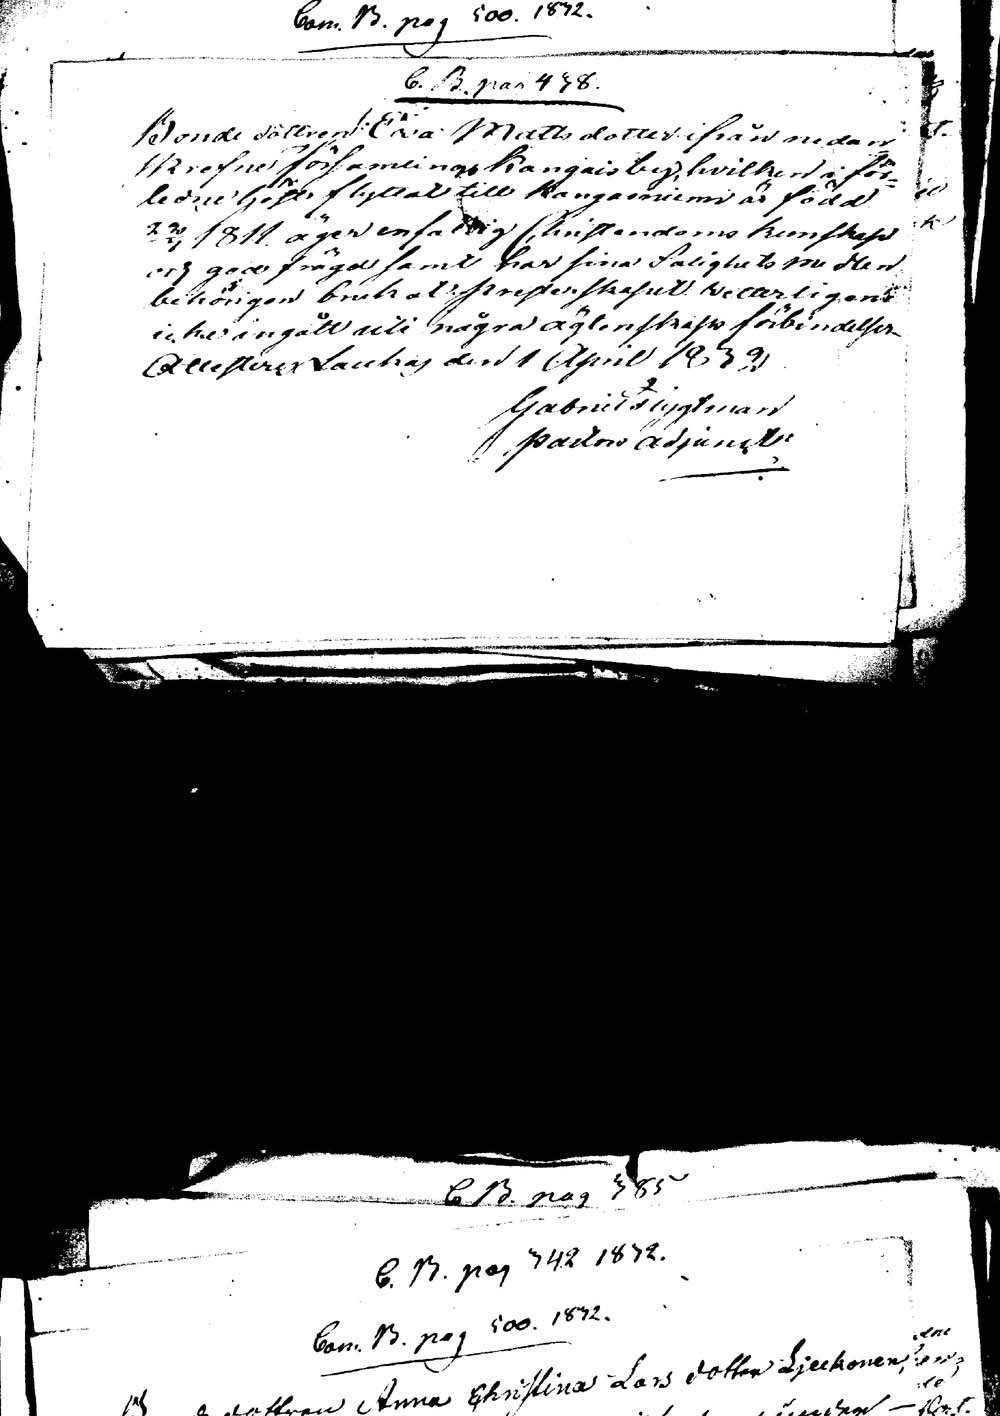 Com. B. pag 500. 1832.
C. B. pag 438.
Bonde dottren Eva Matts dotter ifrån nedan
skrefne församlings Kangais by, hvilken i för-
ledne Höst flyttat till Kangasniemi är född
1811. äger enfaldig Christendoms kunskap
och god frägd samt har sina Salighets medlen
behörigen brukat. Presterskapet vetterligen
icke ingått uti några ägtenskaps förbindelser
Attesterar Laukas den 1 April 1832
Gabriel
pastors Adjunct.
C B. pag 385
C. B. pag 342 1832.
Com. B. pag 500. 1832.
dottren Anna Christina Lars dotter Ljeekonen,